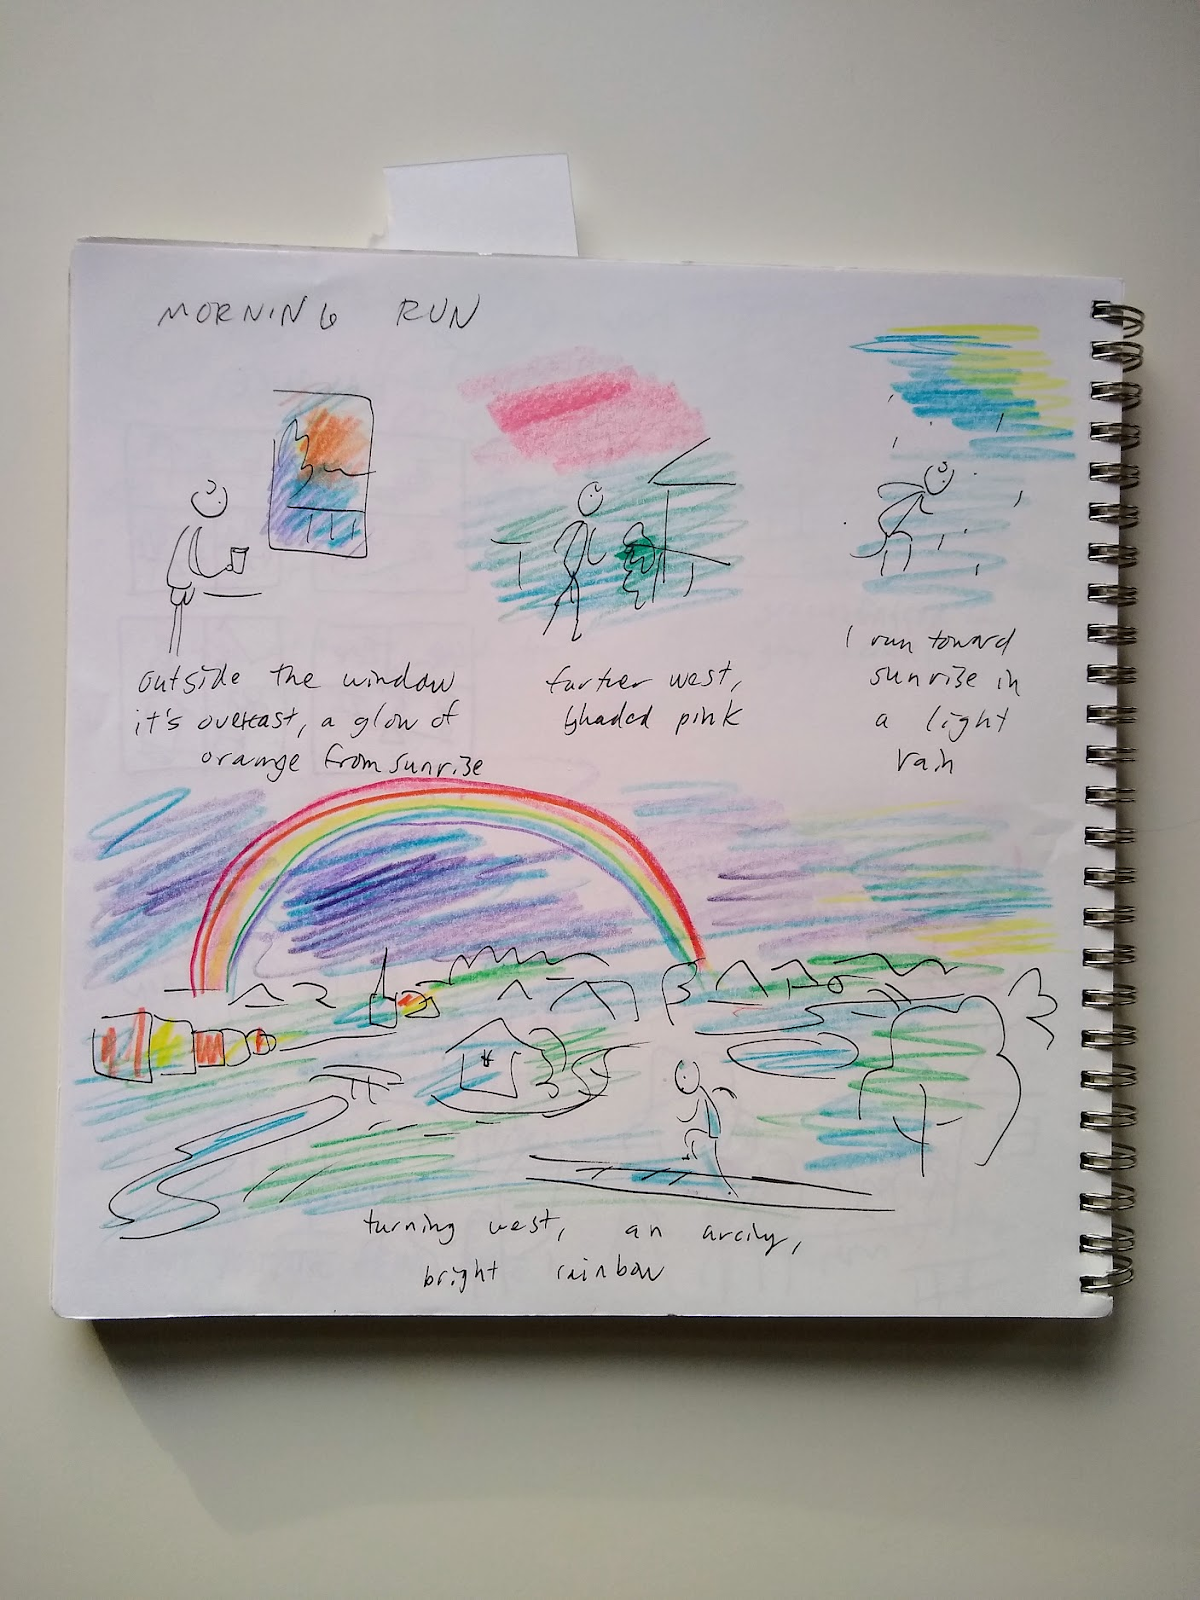 MORNING RUN
outside the window
it's overcast, a glow of
orange from sunrise
farther west,
shaded pink
I run toward
sunrise in
a light
rain
turning west, an arcing,
bright rainbow